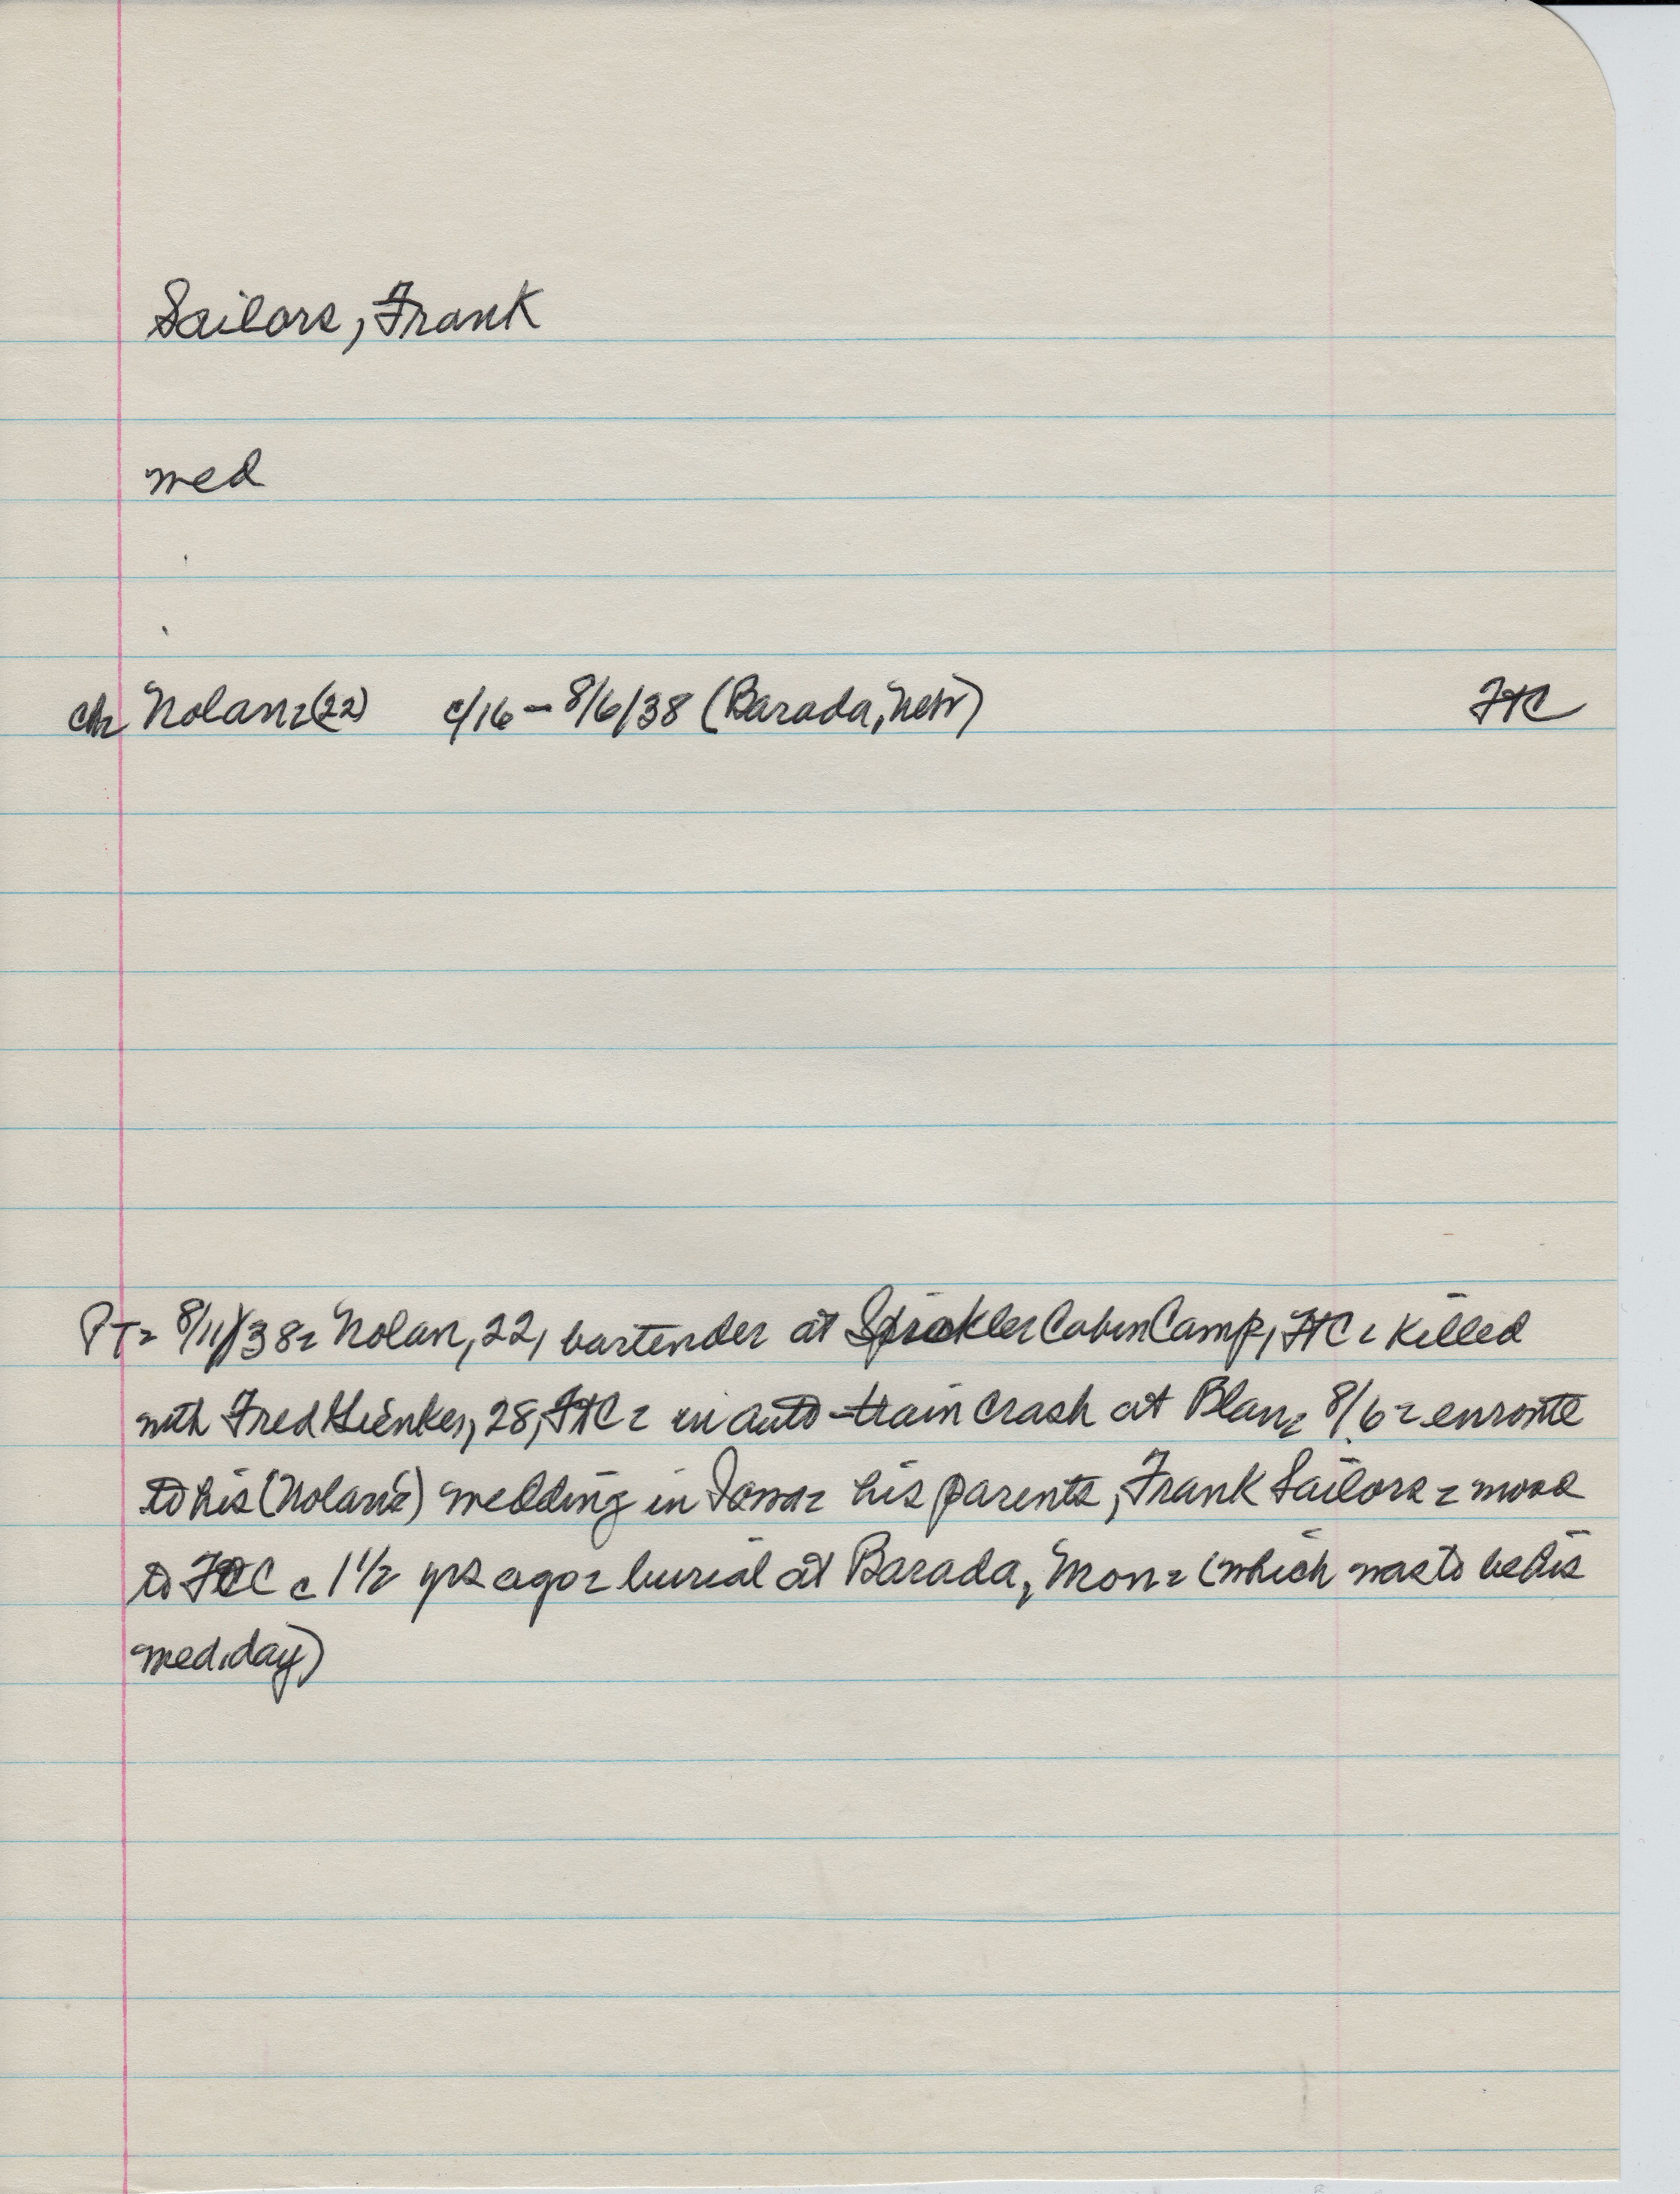 Sailors, Frank
wed
ch Nolan=(22) c/16 - 8/6/38 (Barada, Neb) FtC
PT= 8/11/38= Nolan, 22, bartender at Cabin Camp, FtC = Killed
with Fred Hienkes, 28, FtC = in auto-train crash at Blair, 8/6 = enroute
to his (Nolan's) wedding in Iowa= his parents, Frank Sailors = move
to FtC c 1 1/2 yrs ago= burial at Barada, Mon= (which was to be his
wed. day)